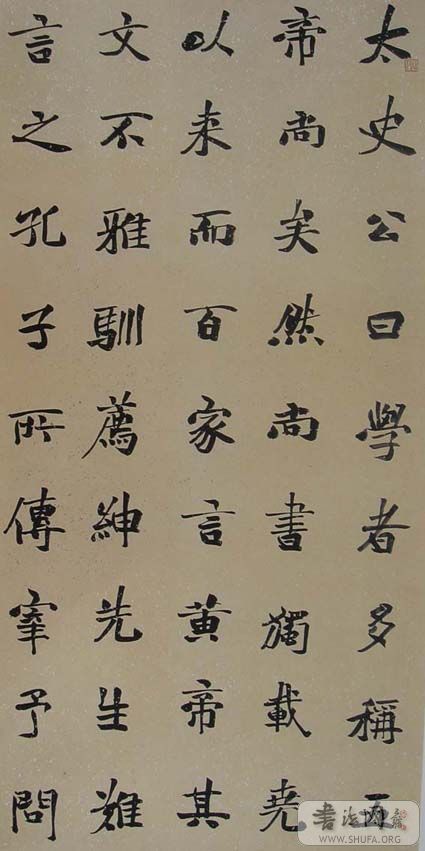 太史公曰學者多稱五
帝尚矣然尚書獨載堯
以来而百家言黄帝其
文不雅馴薦紳先生難
言之孔子所傳宰予問
WWW.SHUFA.ORG